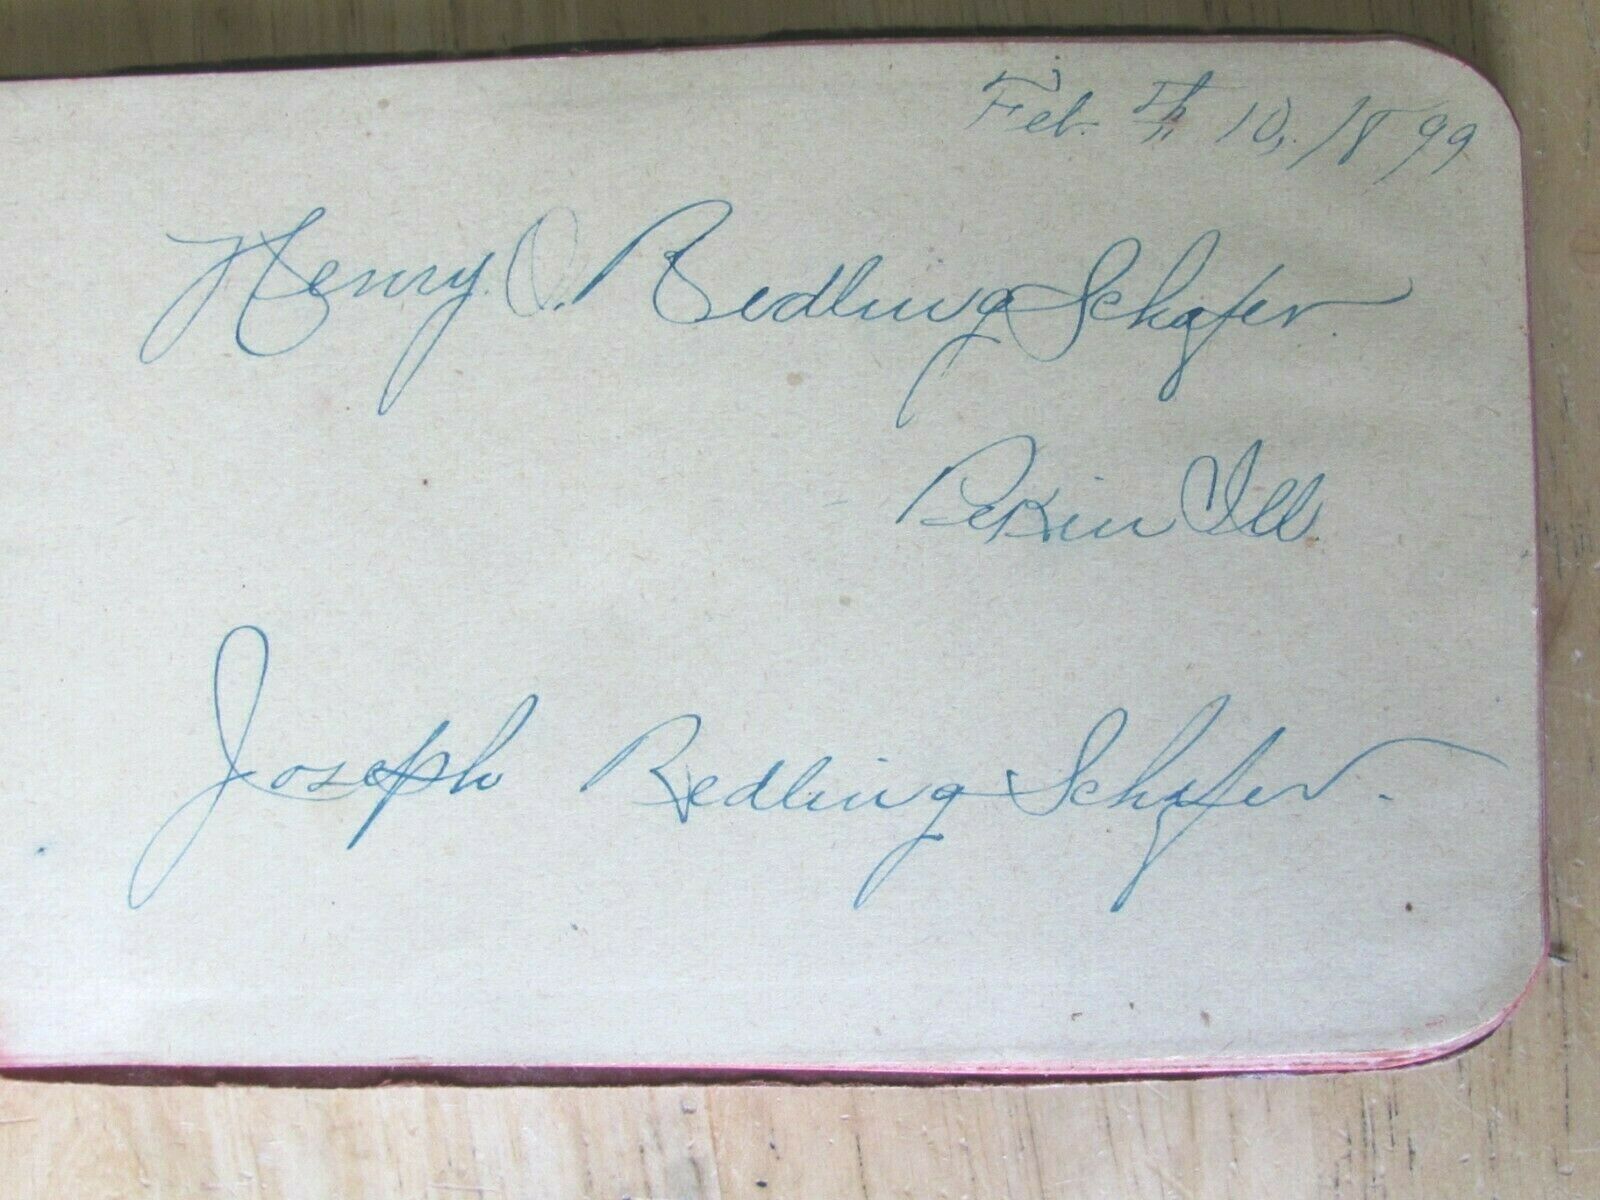 Feb. Th 10, 1899
Henry O. Redling Schafer.
Pekin Ill.
Joseph Redling Schafer.